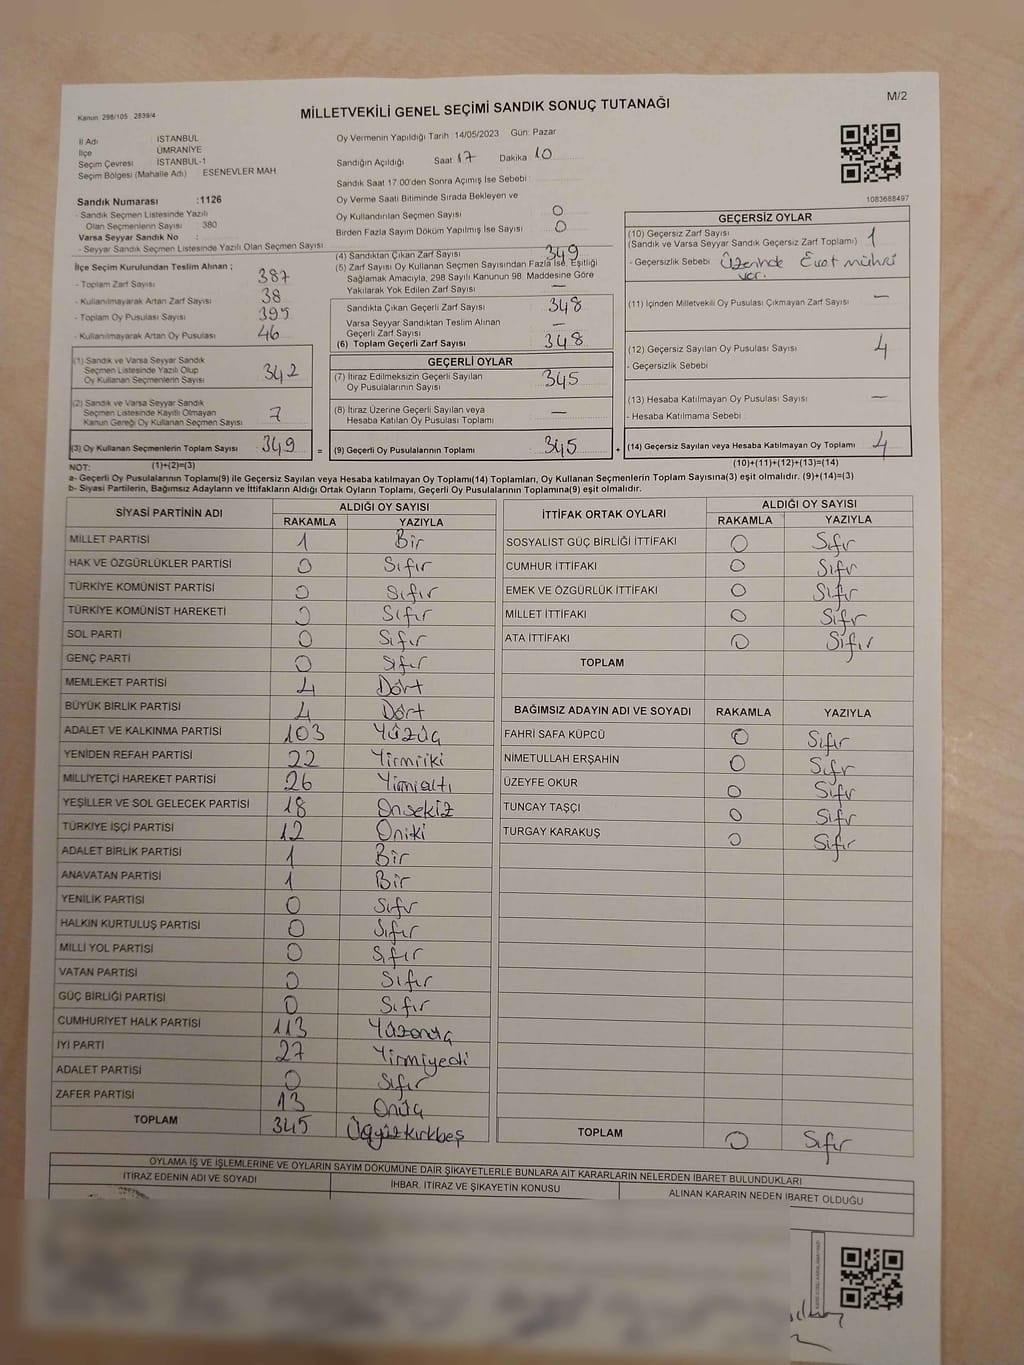 M/2
Kanun 298/105 2839/4
MİLLETVEKİLİ GENEL SEÇİMİ SANDIK SONUÇ TUTANAĞI
İl Adı İSTANBUL
İlçe ÜMRANİYE
Seçim Çevresi İSTANBUL-1
Seçim Bölgesi (Mahalle Adı) ESENEVLER MAH.
Oy Vermenin Yapıldığı Tarih 14/05/2023 Gün: Pazar
Sandığın Açıldığı Saat 17 Dakika 10
Sandık Saat 17.00'den Sonra Açımış İse Sebebi
Sandık Numarası :1126
- Sandık Seçmen Listesinde Yazılı
Olan Seçmenlerin Sayısı 380
Varsa Seyyar Sandık No :
- Seyyar Sandık Seçmen Listesinde Yazılı Olan Seçmen Sayısı
Oy Verme Saati Bitiminde Sırada Bekleyen ve
Oy Kullandırılan Seçmen Sayısı 0
Birden Fazla Sayım Döküm Yapılmış İse Sayısı 0
1083688497
İlçe Seçim Kurulundan Teslim Alınan ;
- Toplam Zarf Sayısı 387
- Kullanılmayarak Artan Zarf Sayısı 38
- Toplam Oy Pusulası Sayısı 395
- Kullanılmayarak Artan Oy Pusulası 46
(1) Sandık ve Varsa Seyyar Sandık
Seçmen Listesinde Yazılı Olup
Oy Kullanan Seçmenlerin Sayısı 342
(2) Sandık ve Varsa Seyyar Sandık
Seçmen Listesinde Kayıtlı Olmayan
Kanun Gereği Oy Kullanan Seçmen Sayısı 7
(3) Oy Kullanan Seçmenlerin Toplam Sayısı 349 =
(1)+(2)=(3)
(4) Sandıktan Çıkan Zarf Sayısı 349
(5) Zarf Sayısı Oy Kullanan Seçmen Sayısından Fazla İse, Eşitliği
Sağlamak Amacıyla, 298 Sayılı Kanunun 98. Maddesine Göre
Yakılarak Yok Edilen Zarf Sayısı —
Sandıkta Çıkan Geçerli Zarf Sayısı 348
Varsa Seyyar Sandıktan Teslim Alınan
Geçerli Zarf Sayısı —
(6) Toplam Geçerli Zarf Sayısı 348
GEÇERLİ OYLAR
(7) İtiraz Edilmeksizin Geçerli Sayılan
Oy Pusulalarının Sayısı 345
(8) İtiraz Üzerine Geçerli Sayılan veya
Hesaba Katılan Oy Pusulası Toplamı —
(9) Geçerli Oy Pusulalarının Toplamı 345 +
GEÇERSİZ OYLAR
(10) Geçersiz Zarf Sayısı
(Sandık ve Varsa Seyyar Sandık Geçersiz Zarf Toplamı) 1
- Geçersizlik Sebebi Üzerinde Evet mührü
var.
(11) İçinden Milletvekili Oy Pusulası Çıkmayan Zarf Sayısı —
(12) Geçersiz Sayılan Oy Pusulası Sayısı 4
- Geçersizlik Sebebi
(13) Hesaba Katılmayan Oy Pusulası Sayısı —
- Hesaba Katılmama Sebebi
(14) Geçersiz Sayılan veya Hesaba Katılmayan Oy Toplamı 4
(10)+(11)+(12)+(13)=(14)
NOT:
a- Geçerli Oy Pusulalarının Toplamı(9) ile Geçersiz Sayılan veya Hesaba katılmayan Oy Toplamı(14) Toplamları, Oy Kullanan Seçmenlerin Toplam Sayısına(3) eşit olmalıdır. (9)+(14)=(3)
b- Siyasi Partilerin, Bağımsız Adayların ve İttifakların Aldığı Ortak Oyların Toplamı, Geçerli Oy Pusulalarının Toplamına(9) eşit olmalıdır.
SİYASİ PARTİNİN ADI ALDIĞI OY SAYISI
RAKAMLA YAZIYLA
MİLLET PARTİSİ 1 Bir
HAK VE ÖZGÜRLÜKLER PARTİSİ 0 Sıfır
TÜRKİYE KOMÜNİST PARTİSİ 0 Sıfır
TÜRKİYE KOMÜNİST HAREKETİ 0 Sıfır
SOL PARTİ 0 Sıfır
GENÇ PARTİ 0 Sıfır
MEMLEKET PARTİSİ 4 Dört
BÜYÜK BİRLİK PARTİSİ 4 Dört
ADALET VE KALKINMA PARTİSİ 103 Yüzüç
YENİDEN REFAH PARTİSİ 22 Yirmiiki
MİLLİYETÇİ HAREKET PARTİSİ 26 Yirmialtı
YEŞİLLER VE SOL GELECEK PARTİSİ 18 Onsekiz
TÜRKİYE İŞÇİ PARTİSİ 12 Oniki
ADALET BİRLİK PARTİSİ 1 Bir
ANAVATAN PARTİSİ 1 Bir
YENİLİK PARTİSİ 0 Sıfır
HALKIN KURTULUŞ PARTİSİ 0 Sıfır
MİLLİ YOL PARTİSİ 0 Sıfır
VATAN PARTİSİ 0 Sıfır
GÜÇ BİRLİĞİ PARTİSİ 0 Sıfır
CUMHURİYET HALK PARTİSİ 113 Yüzonüç
İYİ PARTİ 27 Yirmiyedi
ADALET PARTİSİ 0 Sıfır
ZAFER PARTİSİ 13 Onüç
TOPLAM 345 Üçyüzkırkbeş
İTTİFAK ORTAK OYLARI ALDIĞI OY SAYISI
RAKAMLA YAZIYLA
SOSYALİST GÜÇ BİRLİĞİ İTTİFAKI 0 Sıfır
CUMHUR İTTİFAKI 0 Sıfır
EMEK VE ÖZGÜRLÜK İTTİFAKI 0 Sıfır
MİLLET İTTİFAKI 0 Sıfır
ATA İTTİFAKI 0 Sıfır
TOPLAM
BAĞIMSIZ ADAYIN ADI VE SOYADI RAKAMLA YAZIYLA
FAHRİ SAFA KÜPCÜ 0 Sıfır
NİMETULLAH ERŞAHİN 0 Sıfır
ÜZEYFE OKUR 0 Sıfır
TUNCAY TAŞÇI 0 Sıfır
TURGAY KARAKUŞ 0 Sıfır
TOPLAM 0 Sıfır
OYLAMA İŞ VE İŞLEMLERİNE VE OYLARIN SAYIM DÖKÜMÜNE DAİR ŞİKAYETLERLE BUNLARA AİT KARARLARIN NELERDEN İBARET BULUNDUKLARI
İTİRAZ EDENİN ADI VE SOYADI İHBAR, İTİRAZ VE ŞİKAYETİN KONUSU ALINAN KARARIN NEDEN İBARET OLDUĞU